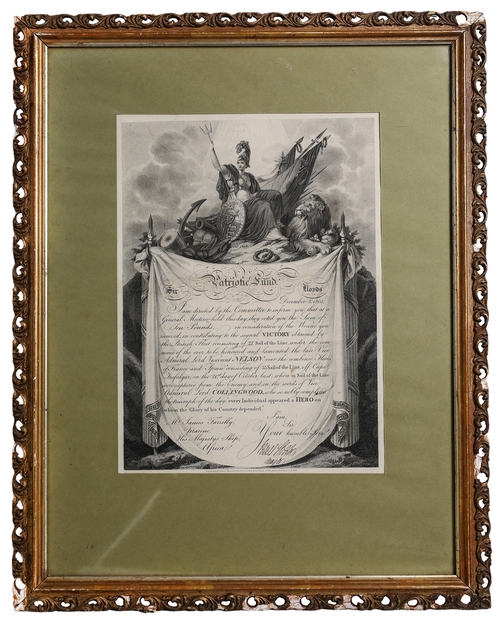 Patriotic Fund.
Sir Lloyds
December 3, 1805.
I am directed by the Committee to inform you, that at a
General Meeting held this day, they voted you the Sum of
Ten Pounds, in consideration of the Wound you
received, in contributing to the signal VICTORY obtained by
the British Fleet consisting of 27 Sail of the Line, under the com-
mand of the ever to be honored and lamented the late Vice
Admiral Lord Viscount NELSON over the combined Fleets
of France and Spain consisting of 33 Sail of the Line, off Cape
Trafalgar, on the 21st day of October last; when 19 Sail of the Line
were captured from the Enemy; and in the words of Vice
Admiral Lord COLLINGWOOD, who so nobly completed
the triumph of the day, every Individual appeared a HERO on
whom the Glory of his Country depended.
I am,
Mr. James Farrelly Sir
Marine Your
His Majesty's Ship humble Serv.
Africa